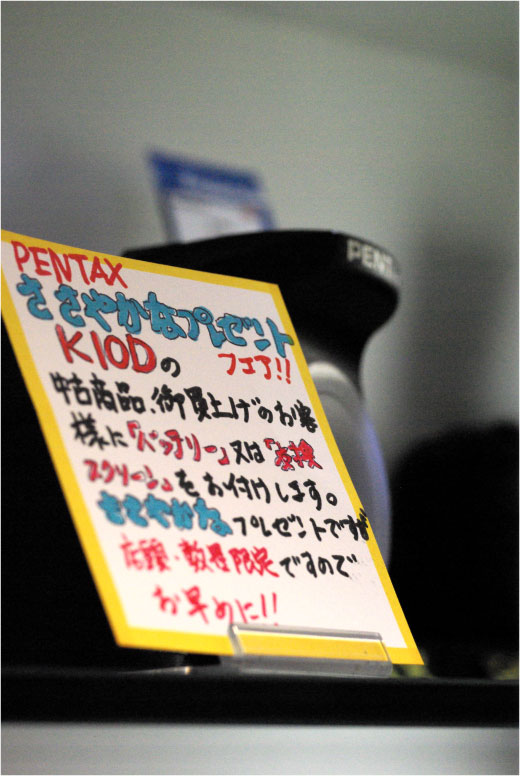 PENTAX
ささやかなプレゼント
K10Dの フェア!!
中古商品、御買上げのお客
様に「バッテリー」又は「交換
スクリーン」をお付けします。
ささやかなプレゼントですが
店頭・数量限定ですので
お早めに!!
PENT